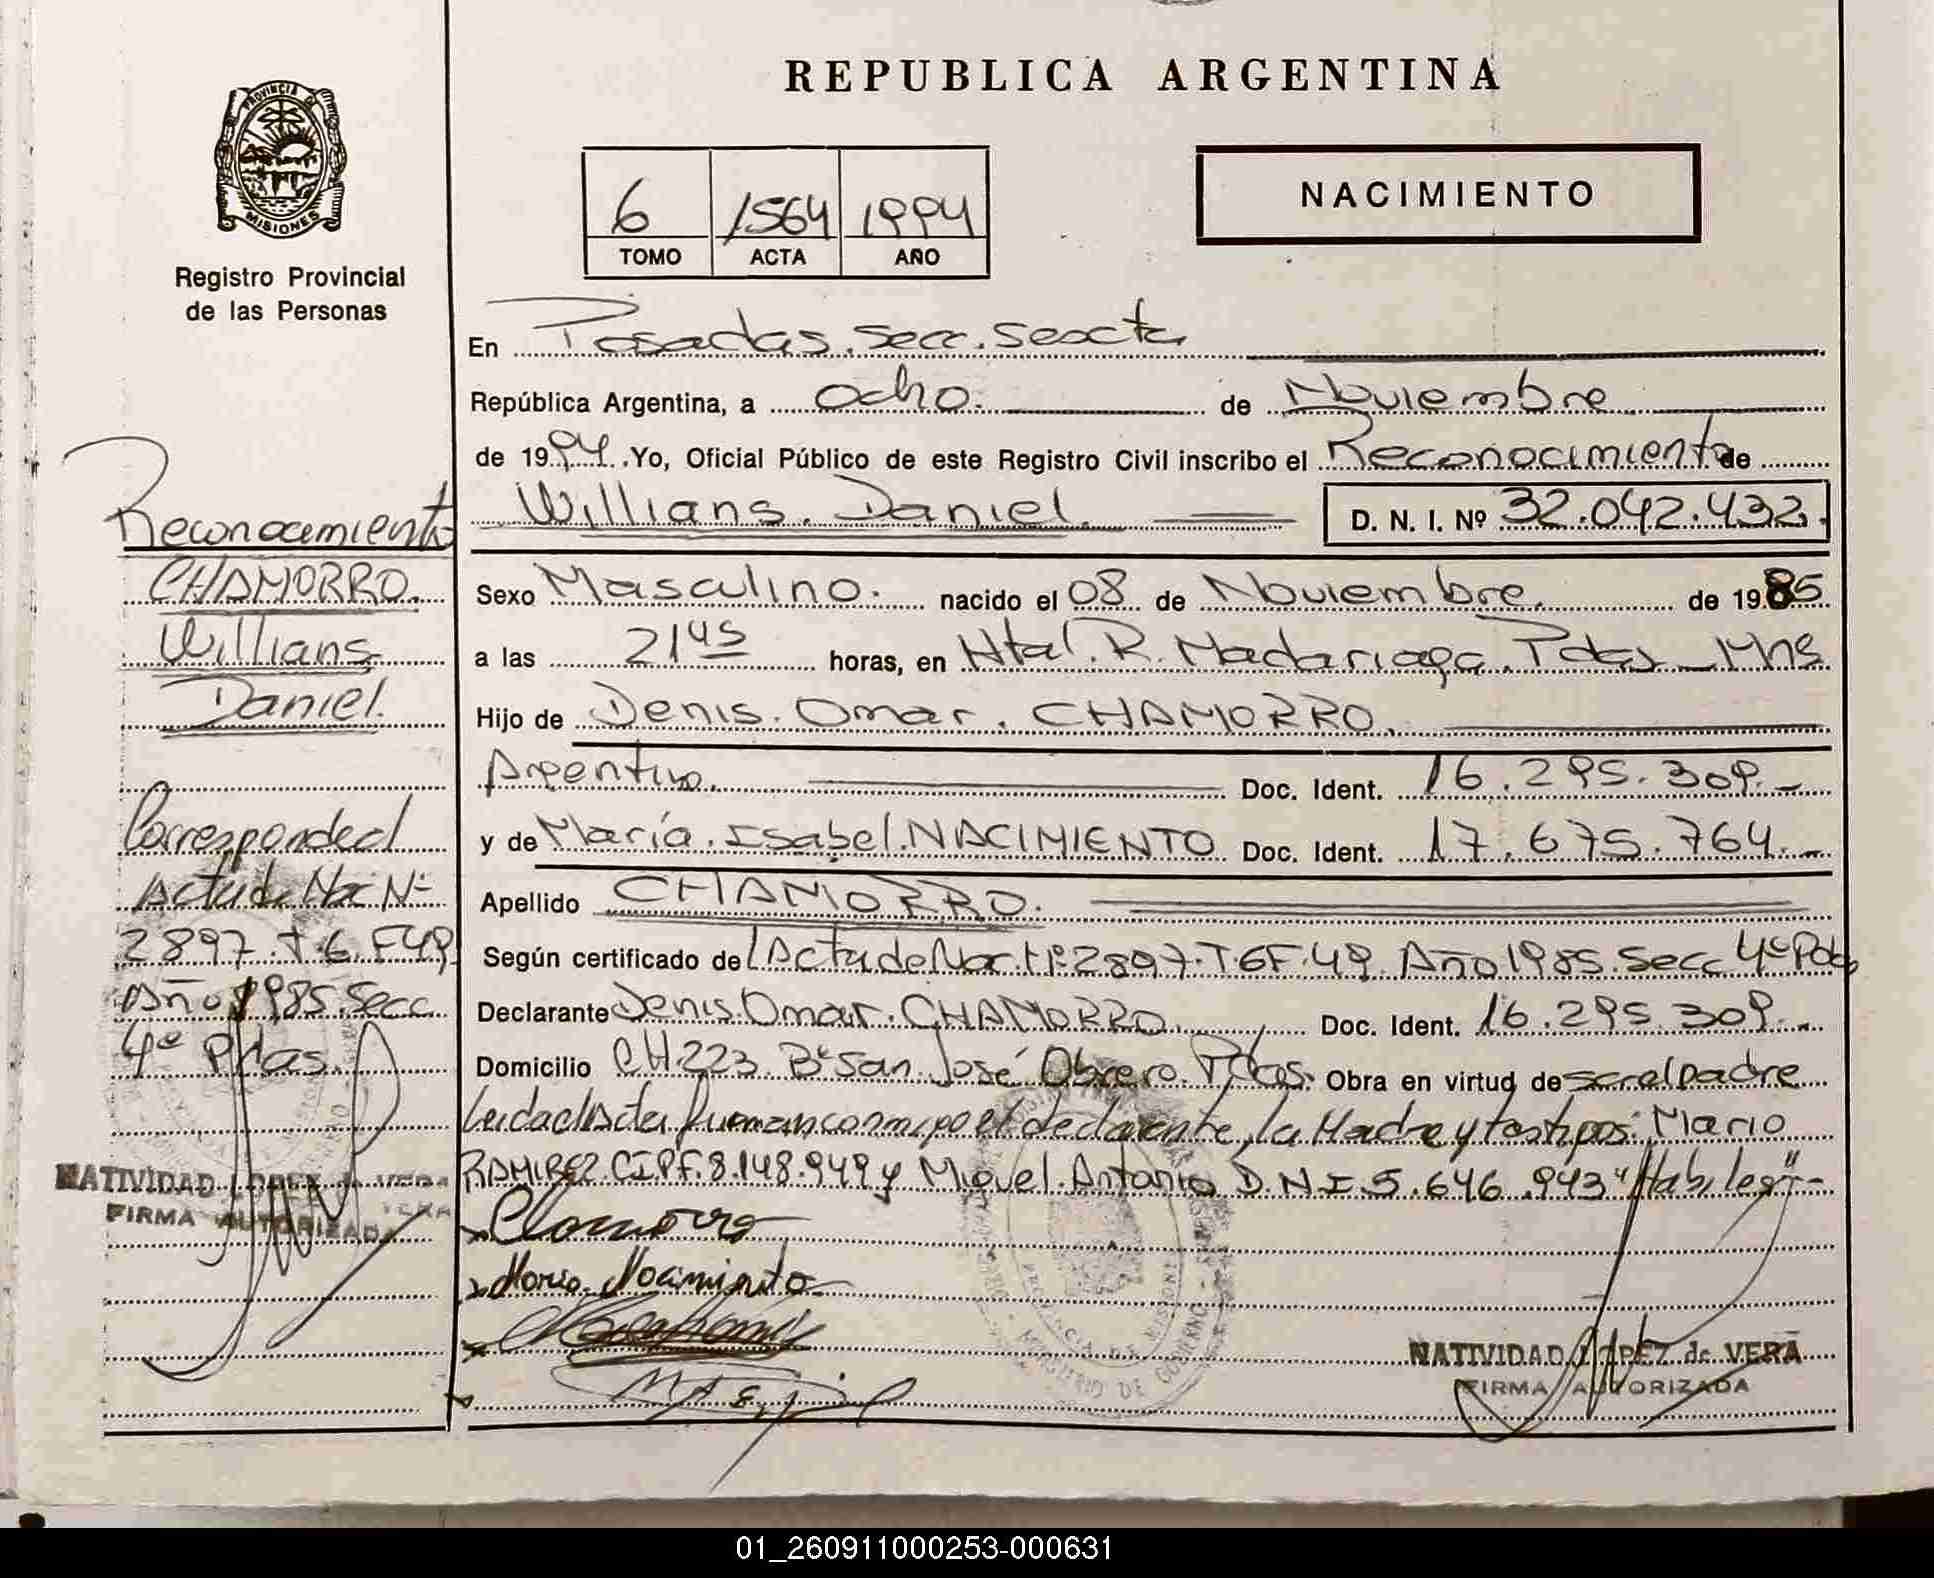 REPUBLICA ARGENTINA
PROVINCIA DE
MISIONES
Registro Provincial
de las Personas
6 1564 1994
TOMO ACTA AÑO
NACIMIENTO
En Posadas. Secc. Sexta
República Argentina, a Ocho. de Noviembre
de 1994. Yo, Oficial Público de este Registro Civil inscribo el Reconocimiento de
Willians. Daniel. D. N. I. Nº 32.042.432.
Sexo Masculino. nacido el 08 de Noviembre. de 1985
a las 21 45 horas, en Htal. R. Madariaga. Pdas _ Mns
Hijo de Denis. Omar. CHAMORRO.
Argentino. Doc. Ident. 16.295.309.-
y de María. Isabel. NACIMIENTO Doc. Ident. 17.675.764.-
Apellido CHAMORRO.
Según certificado del Acta de Nac. Nº 2897. T. 6 F. 49. Año 1985. Secc 4º Pdas
Declarante Denis. Omar. CHAMORRO. Doc. Ident. 16.295.309.-
Domicilio CH. 223. Bº San José Obrero. Pdas. Obra en virtud de ser el padre
Leida el Acta firman conmigo el declarante, la Madre y testigos: Mario
RAMIREZ. C.I.P.F. 8.148.949 y Miguel. Antonio D.N.I. 5.646.943 "Hab. leg"-
Chamorro
Maria. Nacimiento
NATIVIDAD LOPEZ de VERA
FIRMA AUTORIZADA
Reconocimiento
CHAMORRO.
Willians
Daniel.
Corresponde al
Acta de Nac Nº
2897. T. 6. F 49.
Año 1985. Secc
4º Pdas.
NATIVIDAD LOPEZ de VERA
FIRMA AUTORIZADA
01_260911000253-000631